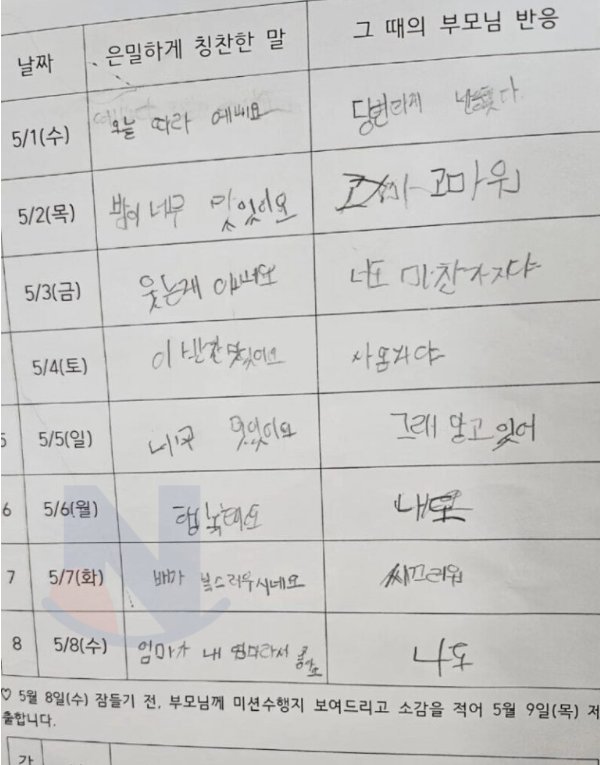 날짜 은밀하게 칭찬한 말 그 때의 부모님 반응
5/1(수) 오늘 따라 예뻐요
5/2(목) 밥이 너무 맛있어요 고마워
5/3(금) 웃는게 너도 마찬가지야
5/4(토) 이 반찬 맛있어요 사온거야
5/5(일) 너무 맛있어요 그래 알고 있어
6 5/6(월) 행복해요 내도
7 5/7(화) 배가 부드러우시네요 씨끄러워
8 5/8(수) 엄마가 내 엄마라서 좋아요 나도
♡ 5월 8일(수) 잠들기 전, 부모님께 미션수행지 보여드리고 소감을 적어 5월 9일(목) 제
출합니다.